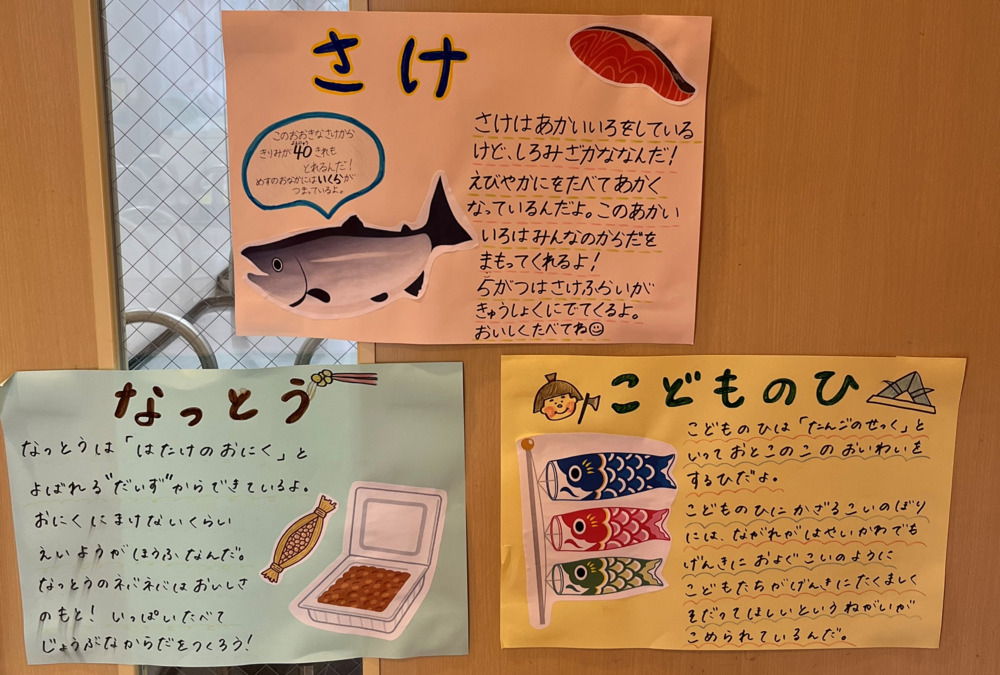 さけ
このおおきなさけから
きりみが40きれも
とれるんだ！
めすのおなかにはいくらが
つまっているよ。
さけはあかいいろをしている
けど、しろみざかななんだ！
えびやかにをたべてあかく
なっているんだよ。このあかい
いろはみんなのからだを
まもってくれるよ！
5がつはさけふらいが
きゅうしょくにでてくるよ。
おいしくたべてね☺
なっとう
なっとうは「はたけのおにく」と
よばれる"だいず"からできているよ。
おにくにまけないくらい
えいようがほうふなんだ。
なっとうのネバネバはおいしさ
のもと！いっぱいたべて
じょうぶなからだをつくろう！
こどものひ
こどものひは「たんごのせっく」と
いっておとこのこのおいわいを
するひだよ。
こどものひにかざるこいのぼり
には、ながれがはやいかわでも
げんきにおよぐこいのように
こどもたちがげんきにたくましく
そだってほしいというねがいが
こめられているんだ。